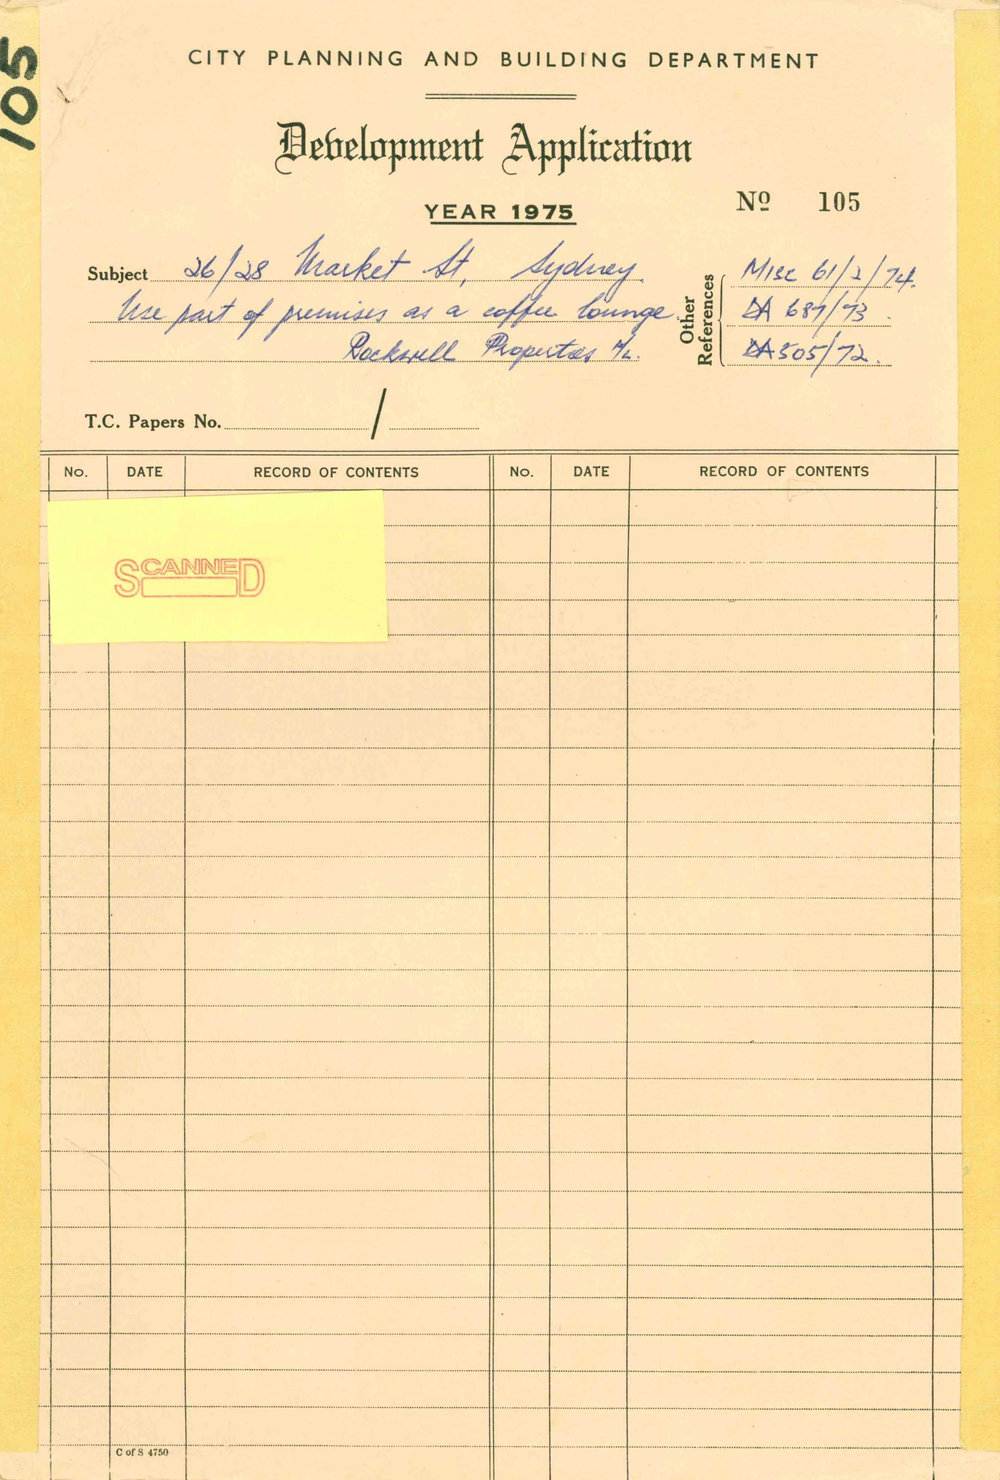 105
CITY PLANNING AND BUILDING DEPARTMENT
Development Application
YEAR 1975
Nº 105
Subject 26/28 Market St, Sydney.
Use part of premises as a coffee lounge.
Rockwell Properties P/L.
Other References
Misc 61/2/74.
DA 687/73.
DA 505/72.
T.C. Papers No. /
No. DATE RECORD OF CONTENTS No. DATE RECORD OF CONTENTS
SCANNED
C of S 4750